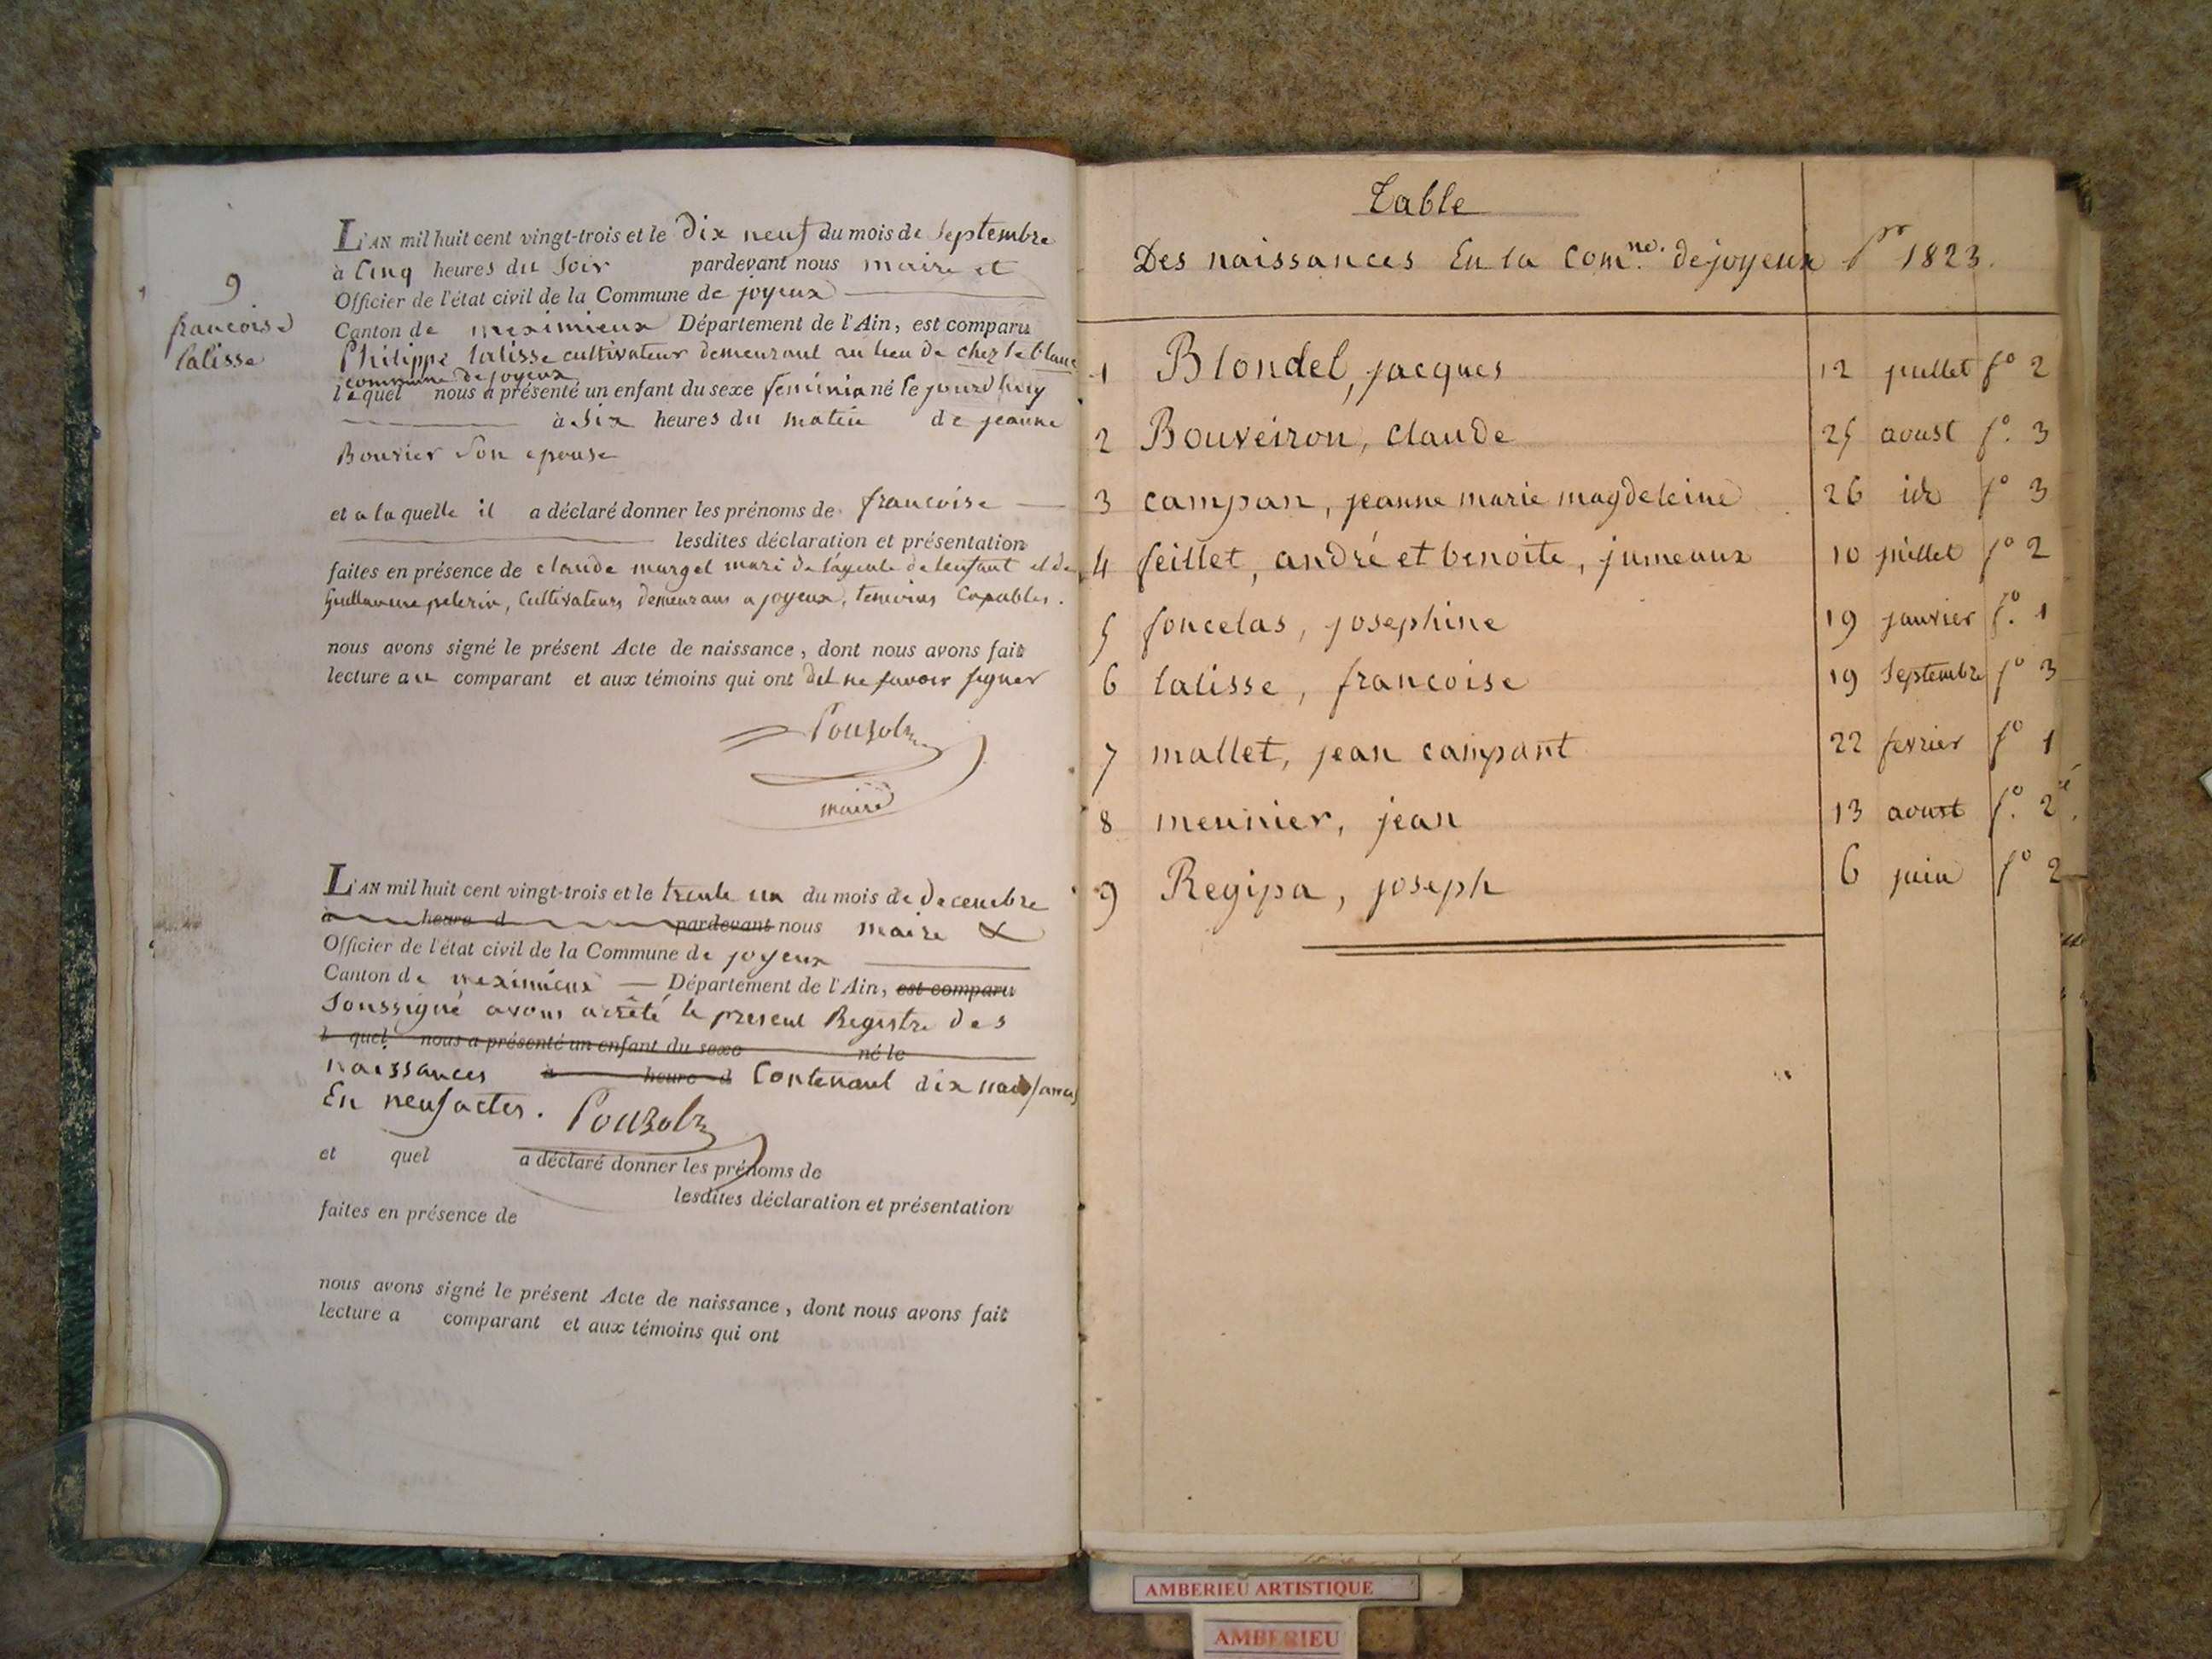 9
francoise
lalisse
L'AN mil huit cent vingt-trois et le dix neuf du mois de septembre
à cinq heures du soir pardevant nous maire et
Officier de l'état civil de la Commune de joyeux
Canton de meximieux Département de l'Ain, est comparu
Philippe lalisse cultivateur demeurant au lieu de chez le blanc
commune de joyeux
lequel nous a présenté un enfant du sexe feminin né le jourdhuy
à six heures du matin de jeanne
Bouvier son epouse
et a la quelle il a déclaré donner les prénoms de francoise
lesdites déclaration et présentation
faites en présence de claude murget mari de layeule de lenfant et de
guillaume pelerin, cultivateurs demeurans a joyeux, temoins capables.
nous avons signé le présent Acte de naissance, dont nous avons fait
lecture au comparant et aux témoins qui ont dit ne savoir signer
Pouzols
maire
L'AN mil huit cent vingt-trois et le trente un du mois de decembre
à heure d pardevant nous maire &
Officier de l'état civil de la Commune de joyeux
Canton de meximieux Département de l'Ain, est comparu
Soussigné avons arrêté le present Registre des
l quel nous a présenté un enfant du sexe né le
naissances à heure d Contenant dix naissances
En neuf actes. Pouzols
et quel a déclaré donner les prénoms de
lesdites déclaration et présentation
faites en présence de
nous avons signé le présent Acte de naissance, dont nous avons fait
lecture a comparant et aux témoins qui ont
Table
Des naissances En la Com.ne de joyeux pr 1823.
1 Blondel, jacques 12 juillet fo 2
2 Bouveiron, claude 25 aoust fo. 3
3 campan, jeanne marie magdeleine 26 id fo 3
4 feillet, andré et benoite, jumeaux 10 juillet fo 2
5 foncelas, josephine 19 janvier fo. 1
6 lalisse, francoise 19 septembre fo 3
7 mallet, jean campant 22 fevrier fo 1
8 meunier, jean 13 aoust fo. 2
9 Regipa, joseph 6 juin fo 2
AMBERIEU ARTISTIQUE
AMBERIEU